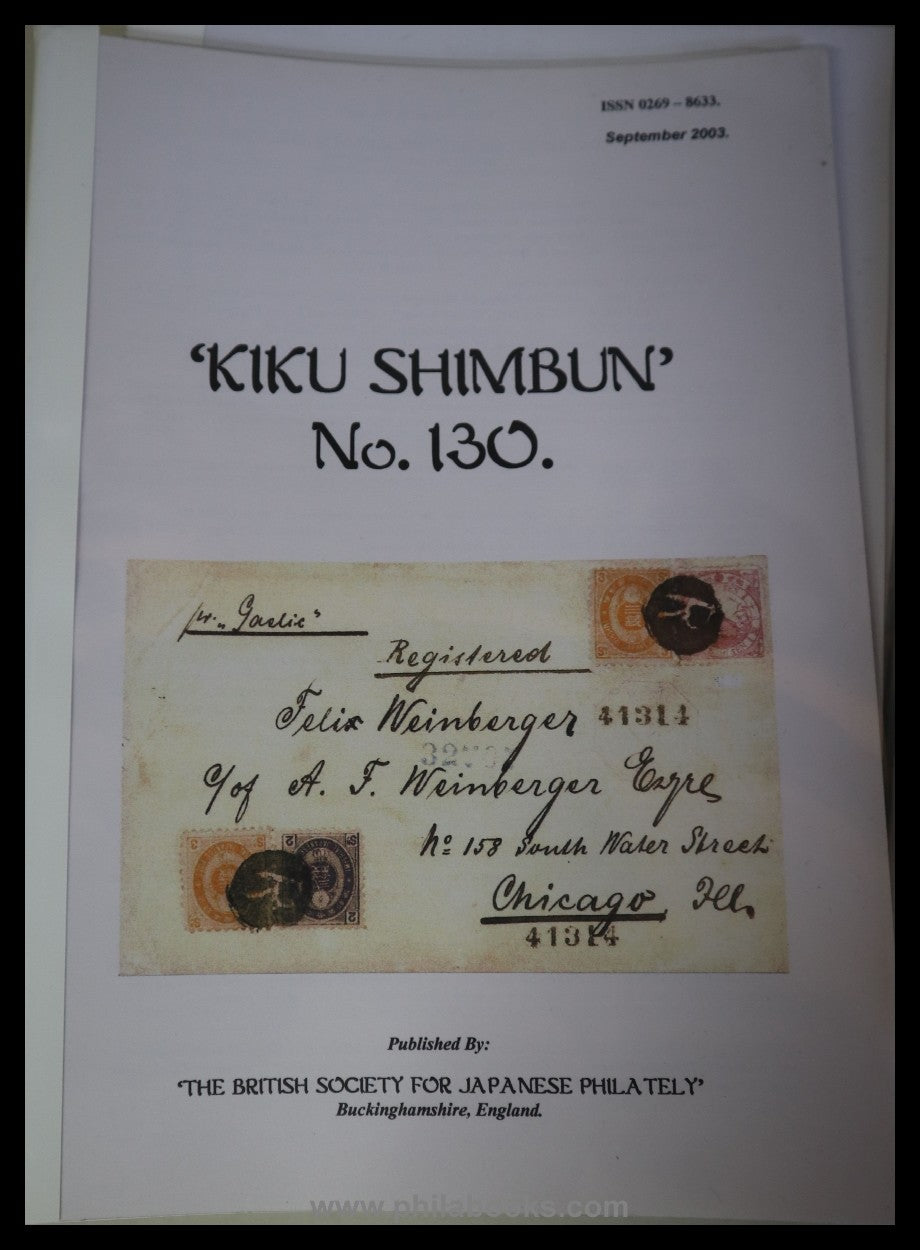 ISSN 0269 – 8633.
September 2003.
‘KIKU SHIMBUN’
No. 130.
pr. „Gaelic“
Registered
Felix Weinberger 41314
c/of A. F. Weinberger Esqre
No 158 South Water Street
Chicago, Ill.
41314
Published By:
‘THE BRITISH SOCIETY FOR JAPANESE PHILATELY’
Buckinghamshire, England.
www.philabooks.com